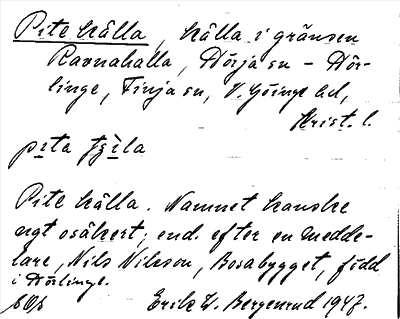 Pite källa, källa i gränsen
Ravnahalla, Nörja sn – Hör-
linge, Finja sn, V. Göinge hd,
Krist. l.
pita
Pite källa. Namnet kanske
ngt osäkert; end. efter en medde-
lare, Nils Nilsson, Bosabygget, född
i Hörlinge.
Erik W. Bergenrud 1947.